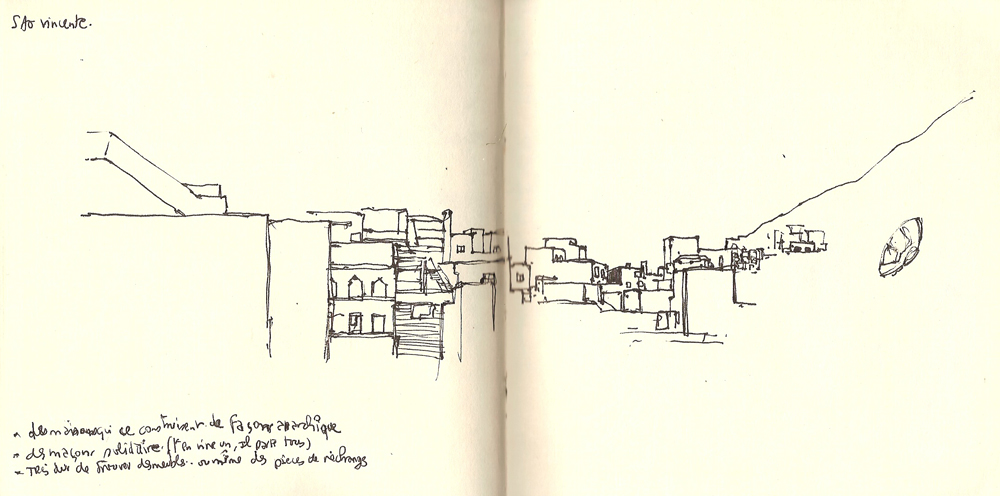 Sto vincente.
- des maisons qui se construisent de façon anarchique
- des maçons solidaire. (t'en vire un, il parte tous)
- Très dur de trouver des meubles.. ou même des pièces de rechange